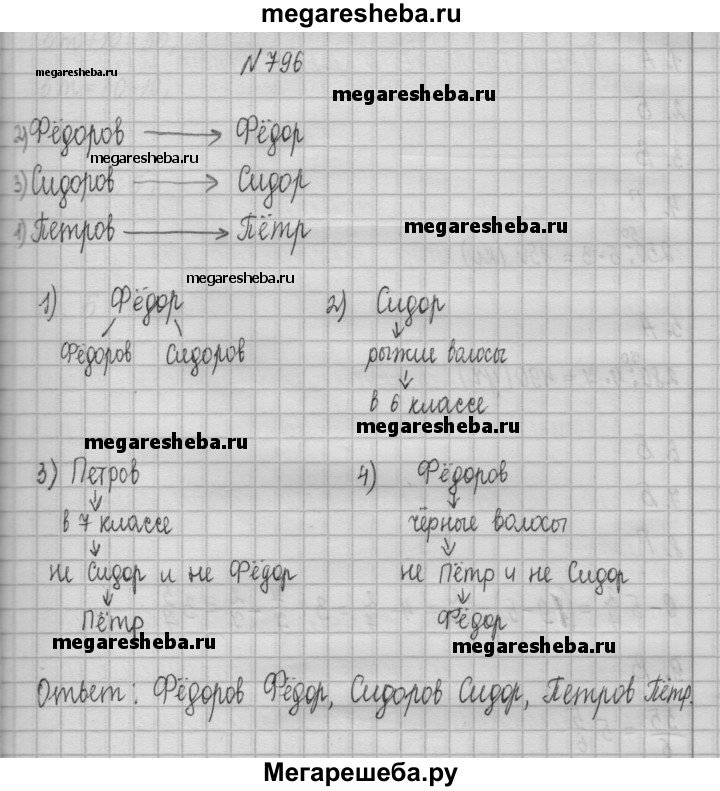 megaresheba.ru
N 796
megaresheba.ru
megaresheba.ru
2) Фёдоров → Фёдор
megaresheba.ru
3) Сидоров → Сидор
1) Петров → Пётр
megaresheba.ru
megaresheba.ru
1) Фёдор
Фёдоров Сидоров
2) Сидор
↓
рыжие волосы
↓
в 6 классе
megaresheba.ru
megaresheba.ru
3) Петров
↓
в 7 классе
↓
не Сидор и не Фёдор
↓
Пётр
megaresheba.ru
4) Фёдоров
↓
чёрные волосы
↓
не Пётр и не Сидор
↓
Фёдор
megaresheba.ru
Ответ: Фёдоров Фёдор, Сидоров Сидор, Петров Пётр.
Мегарешеба.ру